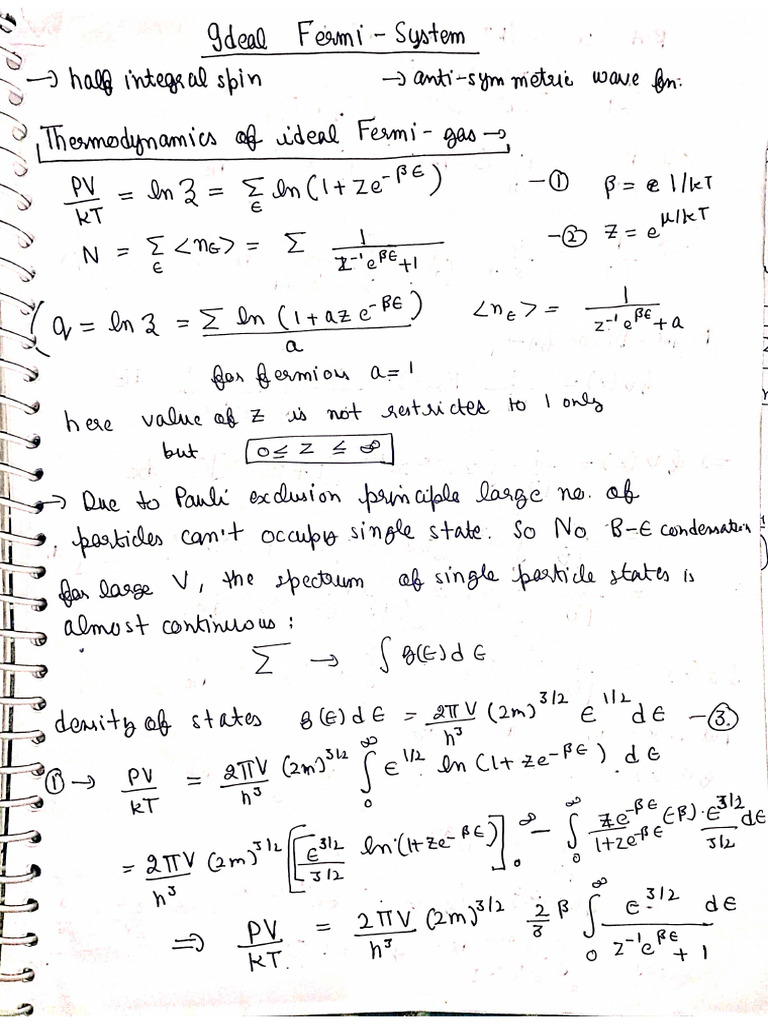 Ideal Fermi-System
→ half integral spin → anti-symmetric wave fn.
Thermodynamics of ideal Fermi-gas →
PV/kT = ln 𝒵 = Σ_ϵ ln(1+ze^{-βϵ}) -① β = 1/kT
N = Σ_ϵ <n_ϵ> = Σ 1/(z^{-1}e^{βϵ}+1) -② z = e^{μ/kT}
(q = ln 𝒵 = Σ ln(1+aze^{-βϵ})/a <n_ϵ> = 1/(z^{-1}e^{βϵ}+a)
for fermions a=1
here value of z is not restricted to 1 only
but 0≤ z ≤ ∞
→ Due to Pauli exclusion principle large no. of
particles can't occupy single state. So No B-E condensation
for large V, the spectrum of single particle states is
almost continuous:
Σ → ∫ g(ϵ)dϵ
density of states g(ϵ)dϵ = 2πV/h³ (2m)^{3/2} ϵ^{1/2} dϵ -③
①→ PV/kT = 2πV/h³ (2m)^{3/2} ∫_0^∞ ϵ^{1/2} ln(1+ze^{-βϵ}) dϵ
= 2πV/h³ (2m)^{3/2} [ϵ^{3/2}/(3/2) ln(1+ze^{-βϵ})]_0^∞ - ∫_0^∞ ze^{-βϵ}/(1+ze^{-βϵ}) (-β)·ϵ^{3/2}/(3/2) dϵ
⇒ PV/kT = 2πV/h³ (2m)^{3/2} 2/3 β ∫_0^∞ ϵ^{3/2} dϵ/(z^{-1}e^{βϵ}+1)